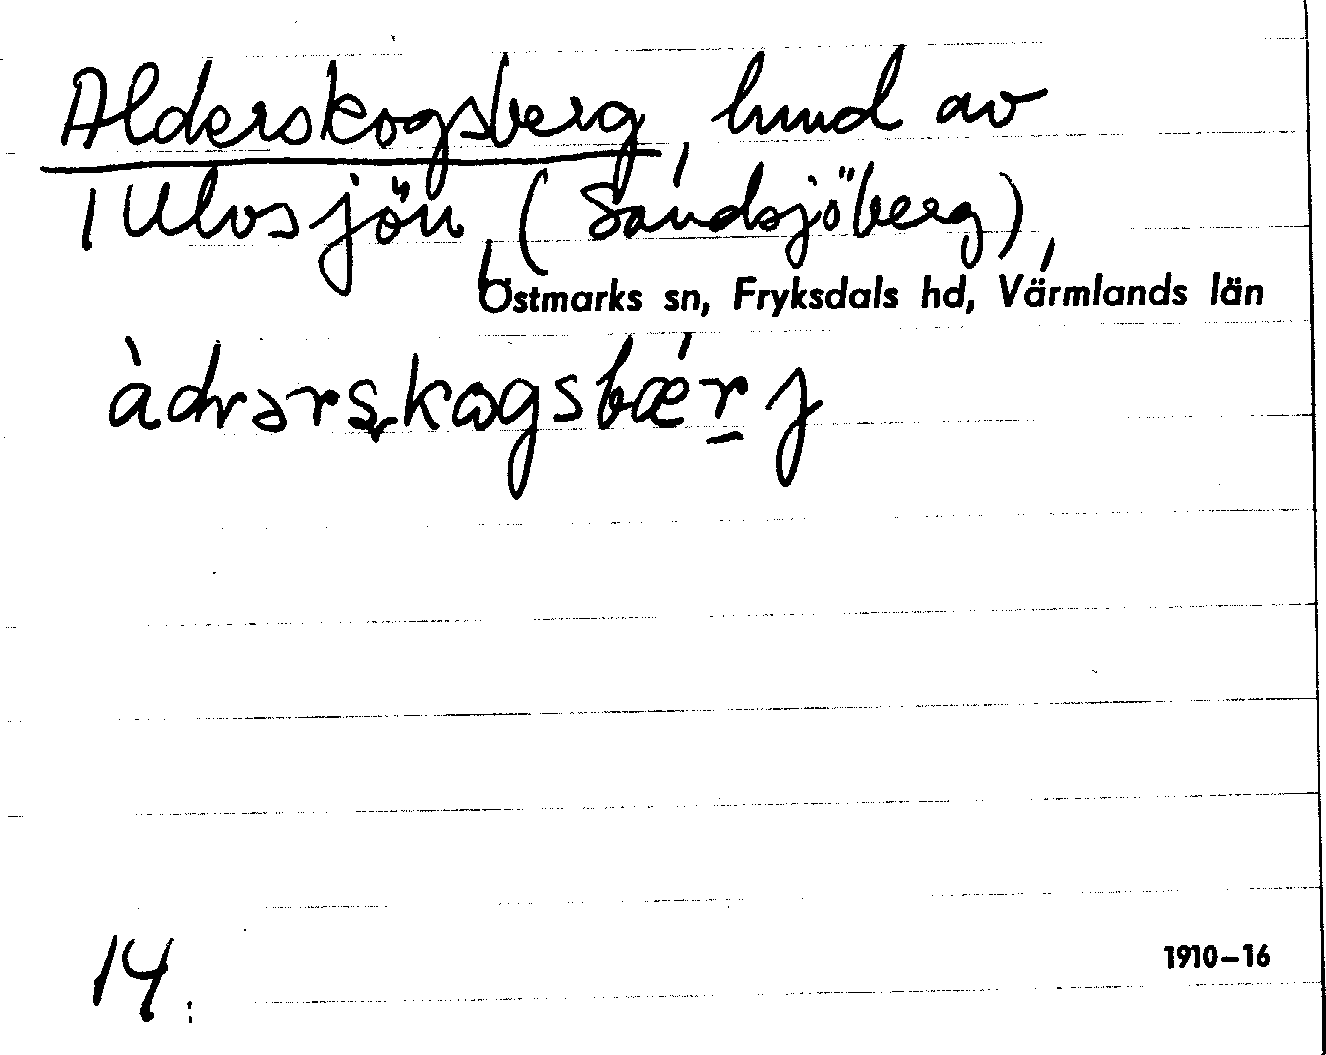 Alderskogsberg, lund av
1 Ulvsjön, (Sandsjöberg),
Östmarks sn, Fryksdals hd, Värmlands län
14.
1910–16